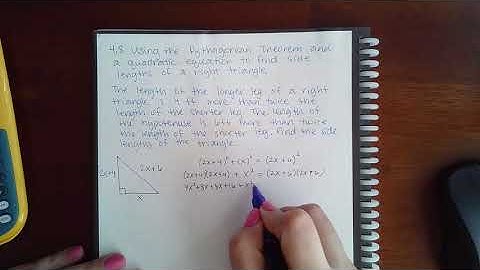 4.8 Using the Pythagorean Theorem and
a quadratic equation to find side
lengths of a right triangle.
The length of the longer leg of a right
triangle is 4 ft more than twice
the length of the shorter leg. The length of
the hypotenuse is 6 ft more than twice
the length of the shorter leg. Find the side
lengths of the triangle.
(2x+4)² + (x)² = (2x+6)²
2x+4
2x+6
(2x+4)(2x+4) + x² = (2x+6)(2x+6)
4x²+8x+8x+16+x²
x